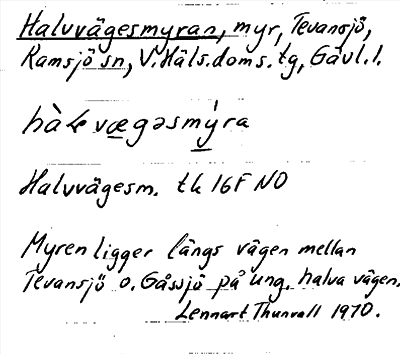 Halvvägesmyran, myr, Tevansjö,
Ramsjö sn, V. Häls. doms. tg, Gävl. l.
hàḷvvægəsmýra
Halvvägesm. tk 16F NO
Myren ligger längs vägen mellan
Tevansjö o. Gåssjö på ung. halva vägen.
Lennart Thunvall 1970.